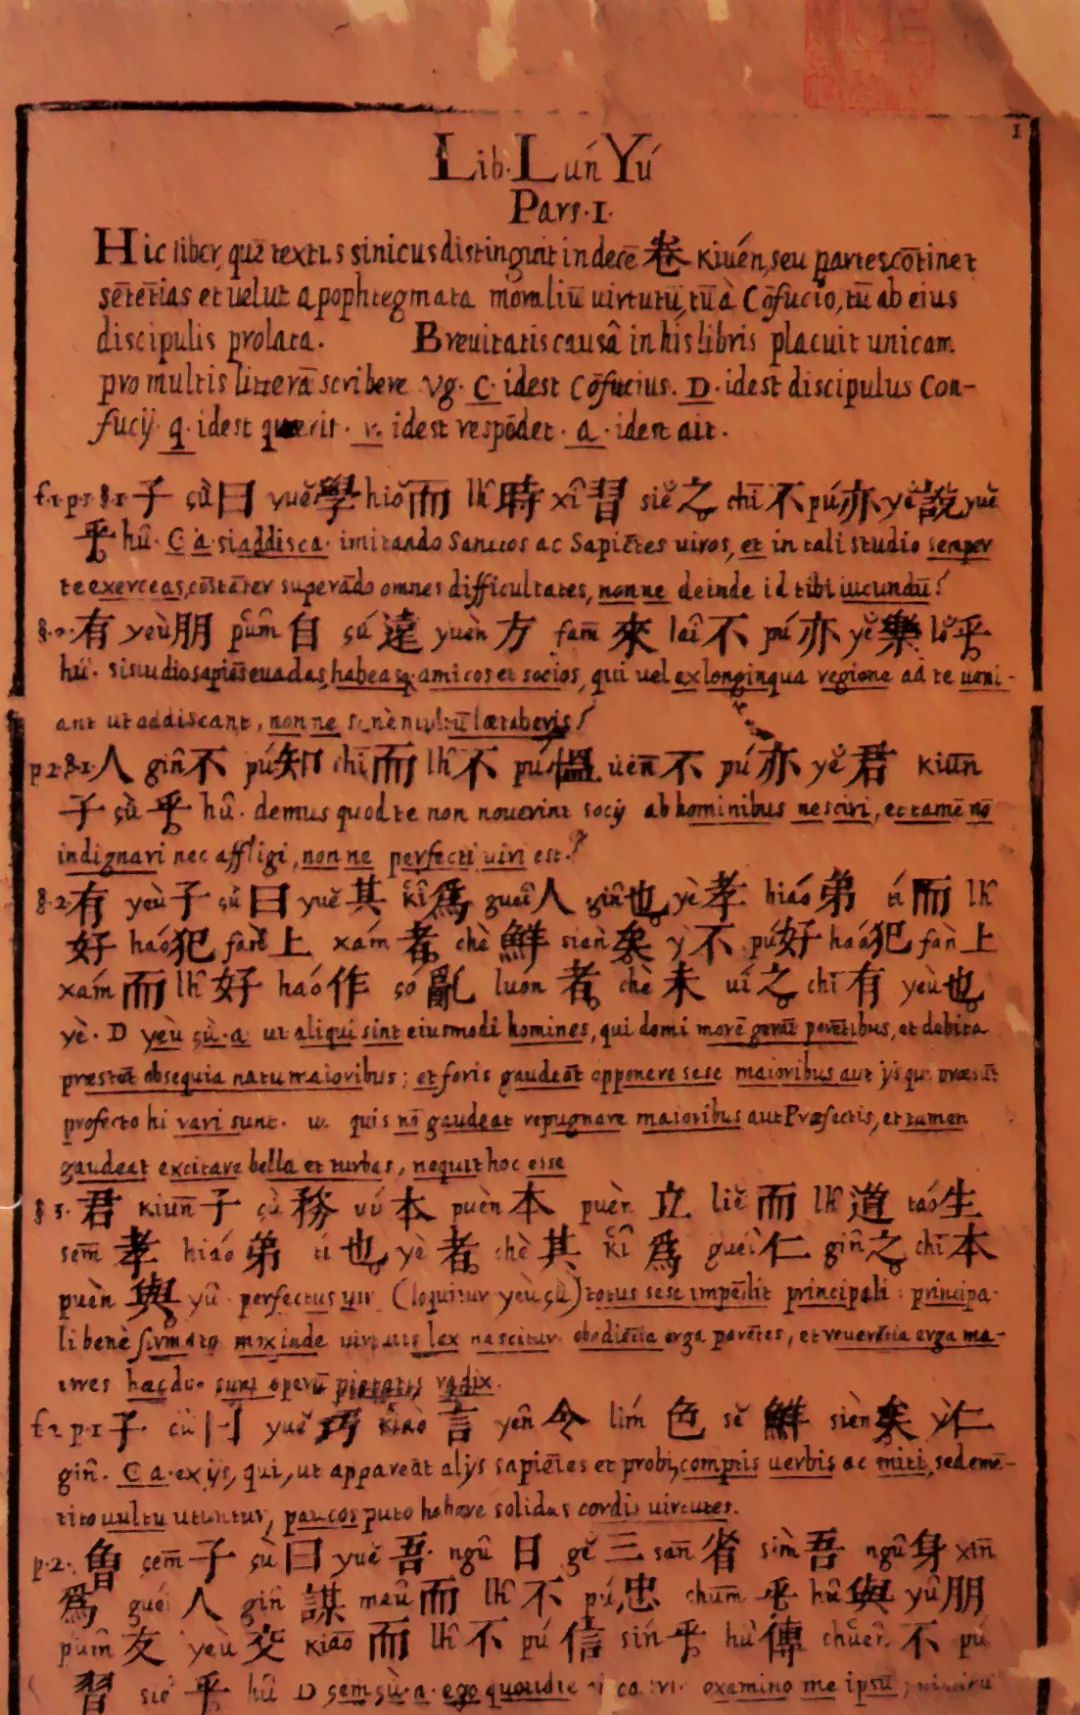 1
Lib. Lún Yú
Pars. 1.
Hic liber, quē textus sinicus distinguit in decē 卷 Kiuén, seu partes, cōtinet
sētētias et uelut apophtegmata moraliū uirtutū, tū à Cōfucio, tū ab eius
discipulis prolata. Breuitatis causâ in his libris placuit unicam
pro multis litterā scribere vg. C. idest Cōfucius. D. idest discipulus Con-
fucij. q. idest quærit. r. idest respōdet. a. idest ait.
f.1.p.1.§.1 子 çù 曰 yuĕ 學 hiŏ 而 lh̑ 時 xî 習 siĕ 之 chī 不 pú 亦 yĕ 說 yuĕ
乎 hû. C a. si addisca. imitando Sanctos ac Sapiētes uiros, et in tali studio semper
te exerceas, cōstāter superādo omnes difficultates, nonne deinde id tibi iucundū?
§.2. 有 yeù 朋 pûm 自 çú 遠 yuèn 方 fam̄ 來 laî 不 pú 亦 yĕ 樂 lŏ 乎
hû. si studio sapiēs euadas, habeasq. amicos et socios, qui uel ex longinqua regione ad te ueni-
ant ut addiscant, nonne lætaberis?
p.2.§.1. 人 gin̂ 不 pú 知 chī 而 lh̑ 不 pú 慍 uén 不 pú 亦 yĕ 君 kiun̄
子 çù 乎 hû. demus quod te non nouerint socij ab hominibus nesciri, et tamē nō
indignari nec affligi, nonne perfecti uiri est?
§.2. 有 yeù 子 çù 曰 yuĕ 其 kî 爲 gueî 人 gin̂ 也 yè 孝 hiáo 弟 tí 而 lh̑
好 haó 犯 fán 上 xám 者 chè 鮮 sièn 矣 ỳ 不 pú 好 haó 犯 fàn 上
xám 而 lh̑ 好 haó 作 só 亂 luón 者 chè 未 uí 之 chī 有 yeù 也
yè. D yeù çù. a. ut aliqui sint eiusmodi homines, qui domi morē gerāt parētibus, et debita
præstēt obsequia natu maioribus; et foris gaudeāt opponere sese maioribus aut ijs qui
profecto hi rari sunt. quis nō gaudeat repugnare maioribus aut Præfectis, et tamen
gaudeat excitare bella et turbas, nequit hoc esse
§ 3. 君 kiun̄ 子 çù 務 vú 本 puèn 本 puèn 立 liĕ 而 lh̑ 道 taó 生
sem̄ 孝 hiáo 弟 tí 也 yè 者 chè 其 kî 爲 gueî 仁 gin̂ 之 chī 本
puèn 與 yû. perfectus uir (loquitur yeù çù) totus sese impēdit principali: principa-
li benè firmato mox inde uirtutis lex nascitur. obediētia erga parētes, et reuerētia erga ma-
iores hæc duo sunt operū pietatis radix.
f.2 p.1 子 çù 曰 yuĕ 巧 kiào 言 yên 令 lím 色 sĕ 鮮 sièn 矣 ỳ 仁
gin̂. C a. ex ijs, qui, ut appareāt alijs sapiētes et probi, comptis uerbis ac miti, sed emē-
tito uultu utuntur, paucos puto habere solidas cordis uirtutes.
p.2. 曾 çem̄ 子 çù 曰 yuĕ 吾 ngû 日 gĕ 三 san̄ 省 sim̀ 吾 ngû 身 xin̄
爲 gué 人 gin̂ 謀 meû 而 lh̑ 不 pú 忠 chum̄ 乎 hû 與 yû 朋
pûm 友 yeù 交 kiāo 而 lh̑ 不 pú 信 sín 乎 hû 傳 chuên 不 pú
習 siĕ 乎 hû D çem̄ çù. a. ego quotidie examino me ipsū